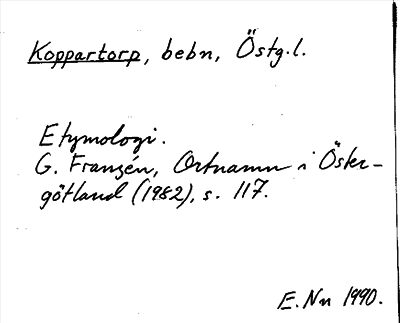 Koppartorp, bebn, Östg.l.
Etymologi.
G. Franzén, Ortnamn i Öster-
götland (1982), s. 117.
E. Nn 1990.